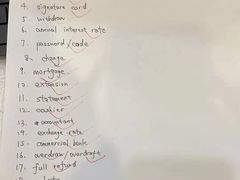 4. signature card
5. withdraw
6. annual interest rate
7. password/code
8. change
9. mortgage
10. extension
11. statement
12. cashier
13. accountant
14. exchange rate
15. commercial bank
16. overdraw/overdraft
17. full refund